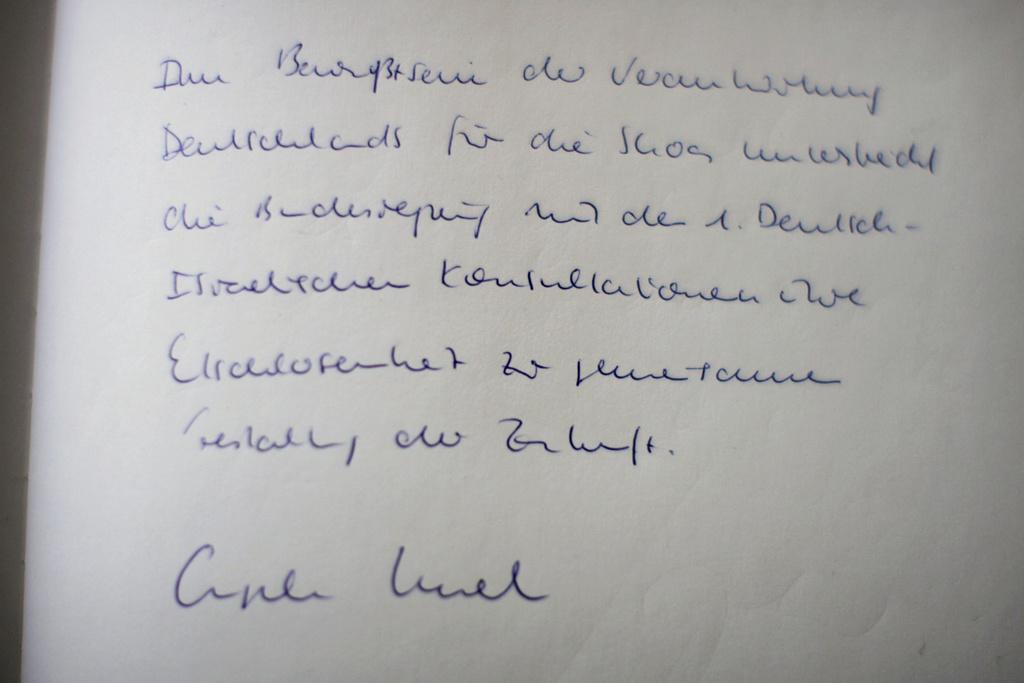 Im Bewußtsein der Verantwortung
Deutschlands für die Shoa unterstreicht
die Bundesregierung mit den 1. Deutsch-
Israelischen Konsultationen ihre
Entschlossenheit zur gemeinsamen
Gestaltung der Zukunft.
Angela Merkel